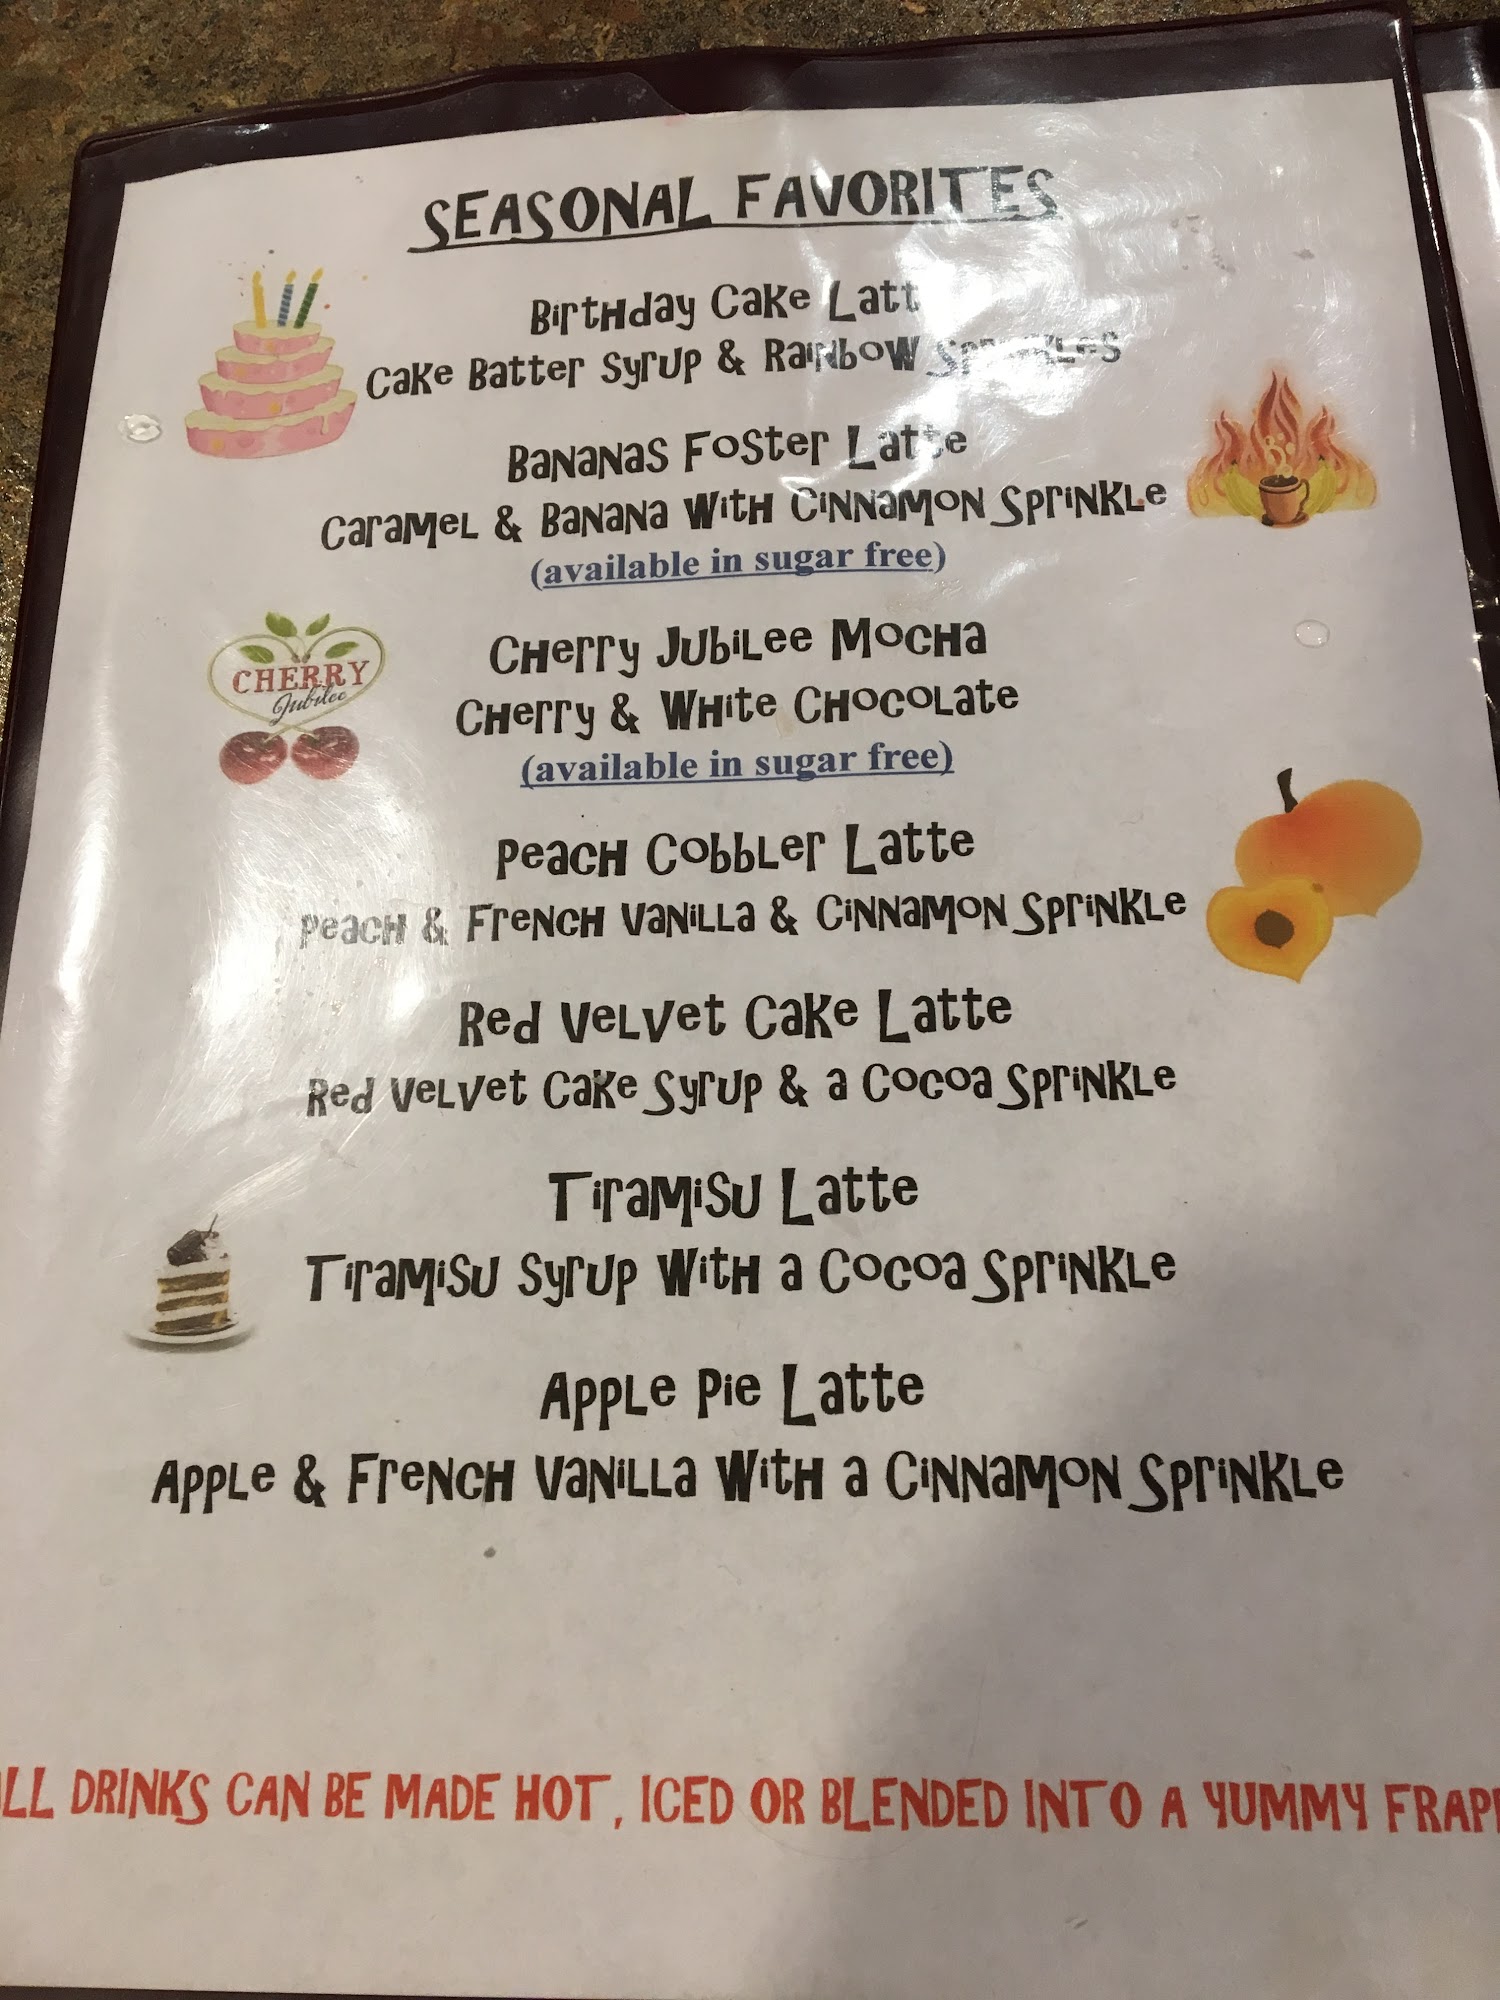 SEASONAL FAVORITES
Birthday Cake Latt
Cake Batter Syrup & Rainbow Sprinkles
Bananas Foster Latte
Caramel & Banana With Cinnamon Sprinkle
(available in sugar free)
CHERRY
Jubilee
Cherry Jubilee Mocha
Cherry & White Chocolate
(available in sugar free)
Peach Cobbler Latte
Peach & French Vanilla & Cinnamon Sprinkle
Red Velvet Cake Latte
Red Velvet Cake Syrup & a Cocoa Sprinkle
Tiramisu Latte
Tiramisu Syrup With a Cocoa Sprinkle
Apple Pie Latte
Apple & French Vanilla With a Cinnamon Sprinkle
LL DRINKS CAN BE MADE HOT, ICED OR BLENDED INTO A YUMMY FRAPP